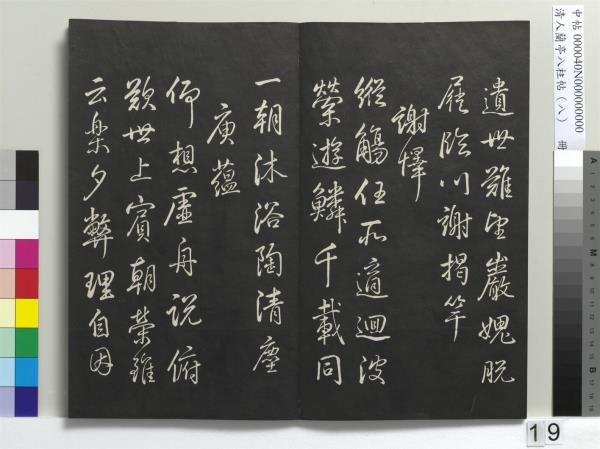 中帖 000040N000000000 冊
清人蘭亭八柱帖（八）
遺世難望巖媿脫
屣臨川謝揭竿
謝懌
縱觴任所適迴波
縈遊鱗千載同
一朝沐浴陶清塵
庾蘊
仰想虛舟說俯
歎世上賓朝榮雖
云樂夕弊理自因
19